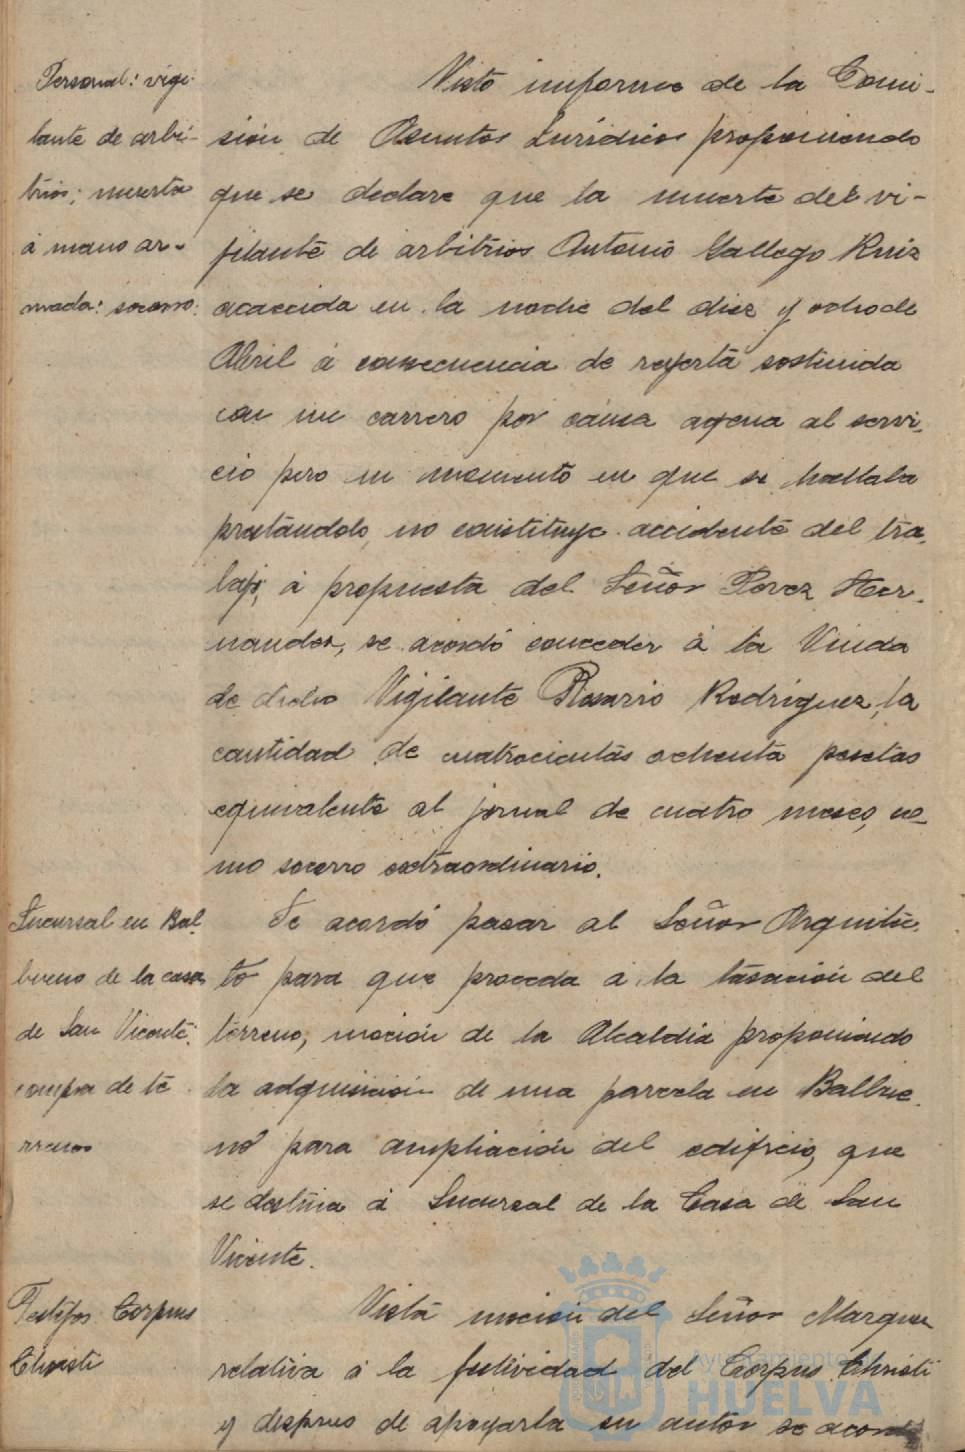 Personal: vigi-
lante de arbi-
trios; muerta
á mano ar-
mada: socorro.
Visto informe de la Comi-
sión de Asuntos Jurídicos proponiendo
que se declare que la muerte del vi-
gilante de arbitrios Antonio Gallego Ruiz
acaecida en la noche del diez y ocho de
Abril á consecuencia de reyerta sostenida
con un carrero por causa agena al servi-
cio pero en momento en que se hallaba
prestándolo, no constituye accidente del tra-
bajo; á propuesta del Señor Perez Her-
nandez, se acordó conceder á la Viuda
de dicho Vigilante Rosario Rodriguez, la
cantidad de cuatrocientas ochenta pesetas
equivalente al jornal de cuatro meses, co-
mo socorro extraordinario.
Sucursal en Bal-
bueno de la casa
de San Vicente:
compra de te-
rrenos
Se acordó pasar al Señor Arquitec-
to para que proceda á la tasación del
terreno, moción de la Alcaldía proponiendo
la adquisición de una parcela en Balbue-
no para ampliación del edificio, que
se destina á Sucursal de la Casa de San
Vicente.
Festejos Corpus
Christi
Vista moción del Señor Marquez
relativa á la festividad del Corpus Christi
y despues de apoyarla su autor se acordó
Ayuntamiento de
HUELVA